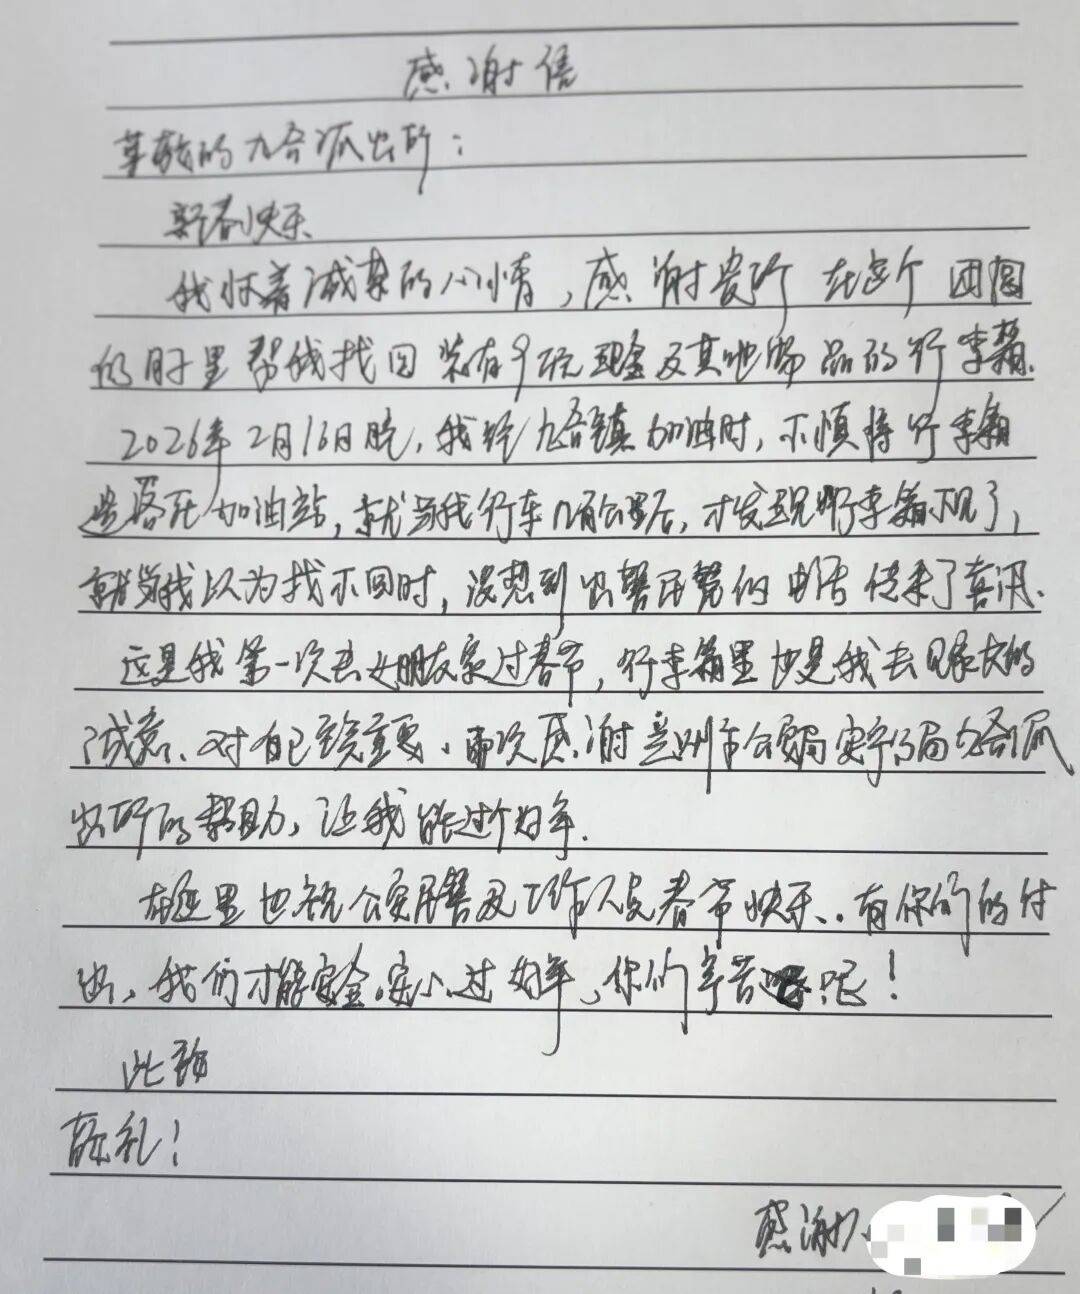 感谢信
尊敬的九合派出所：
新春快乐
我怀着诚挚的心情，感谢贵所在这个团圆
的时里帮我找回装有9万元现金及其他物品的行李箱.
2026年2月16日晚，我经九合镇加油时，不慎将行李箱
遗落在加油站，就当我行车几百公里后，才发现行李箱不见了，
就当我以为找不回时，没想到出警民警的电话传来了喜讯.
这是我第一次去女朋友家过春节，行李箱里也是我去见家长的
诚意、对自己至关重要、再次感谢兰州市公安局安宁分局九合派
出所的帮助，让我能过个好年.
在这里也祝公安民警及工作人员春节快乐、有你们的付
出，我们才能安全安心过好年，你们辛苦呢！
此致
敬礼！
感谢人